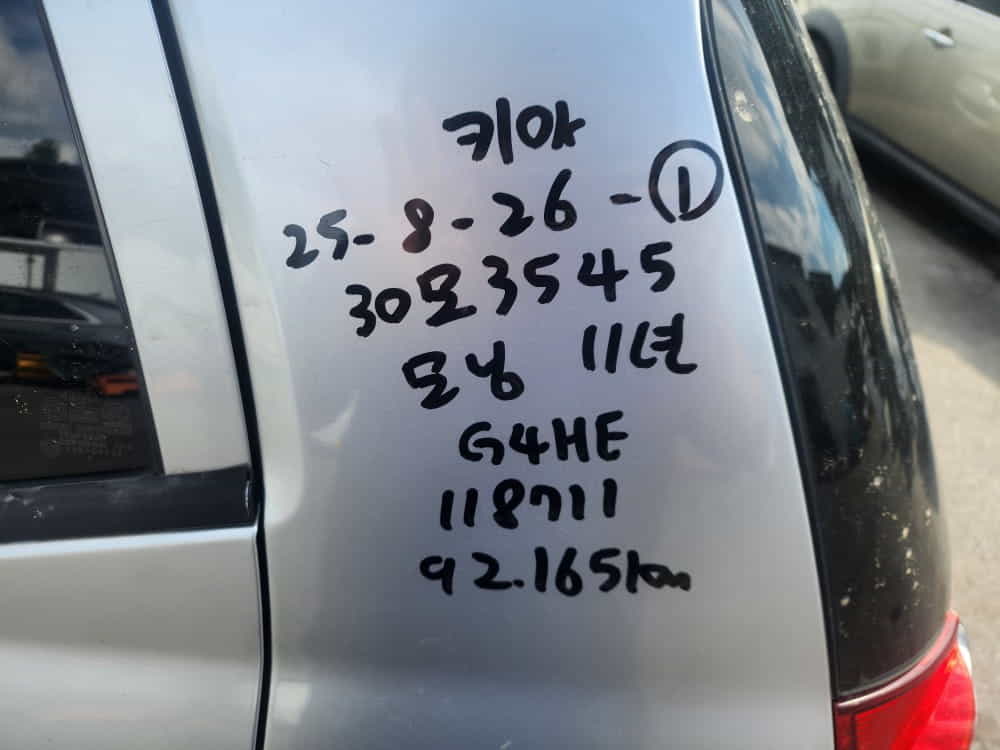 키아
25-8-26-①
30모3545
모닝 11년
G4HE
118711
92.165km